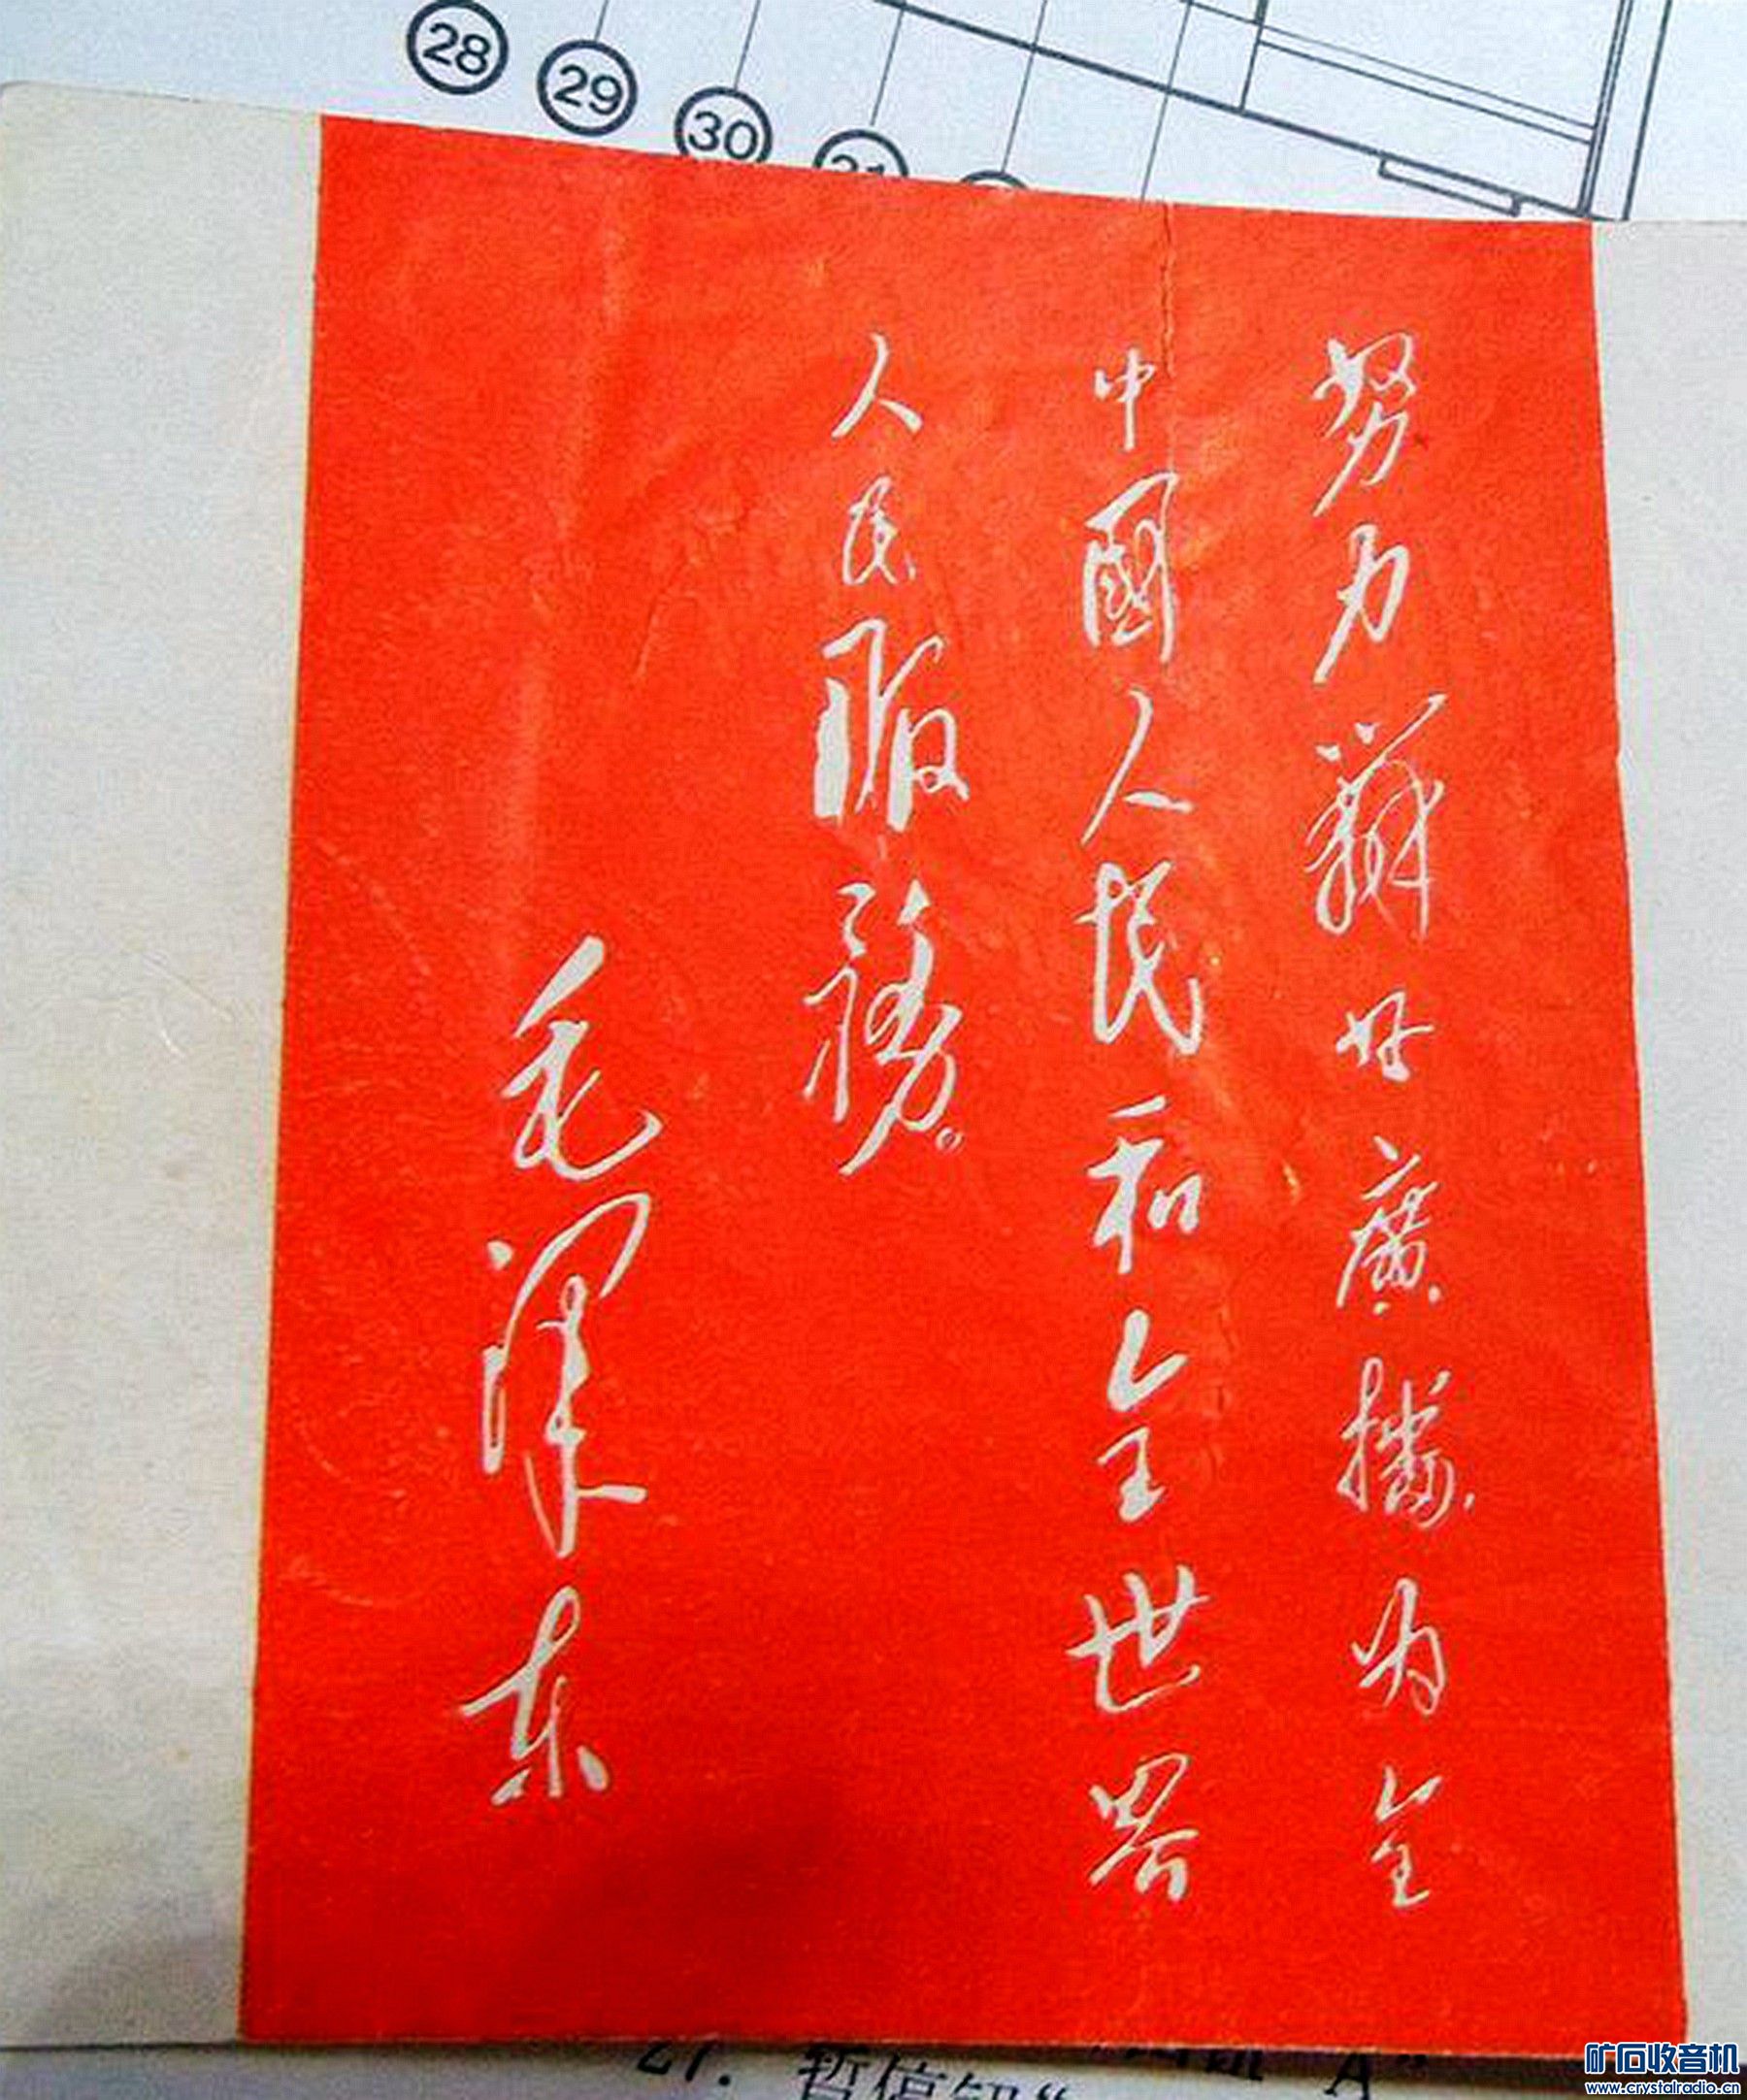 28
29
30
31
努力辦好廣播为全
中國人民和全世界
人民服務。
毛澤东
27. 暂停钮“
A”
矿石收音机
www.crystalradio.cn